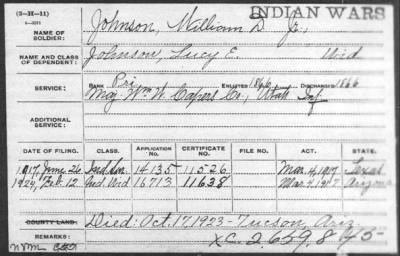 INDIAN WARS
(3-H-11)
NAME OF SOLDIER: Johnson, William D Jr.,
NAME AND CLASS OF DEPENDENT: Johnson, Lucy E. Wid
SERVICE: RANK Pri ENLISTED 1866 DISCHARGED 1866
Maj. Wm. W. Capers Co., Utah Inf
ADDITIONAL SERVICE:
DATE OF FILING. CLASS. APPLICATION NO. CERTIFICATE NO. FILE NO. ACT. STATE.
1917, June 26 Ind. Sur. 14135 11526 Mar. 4, 1917 Texas
1924, Feb. 12 Ind. Wid 16713 11638 Mar. 4, 1917 Arizona
COUNTY LAND: Died: Oct. 17, 1923 - Tucson, Ariz.
REMARKS: XC. 2,659,845